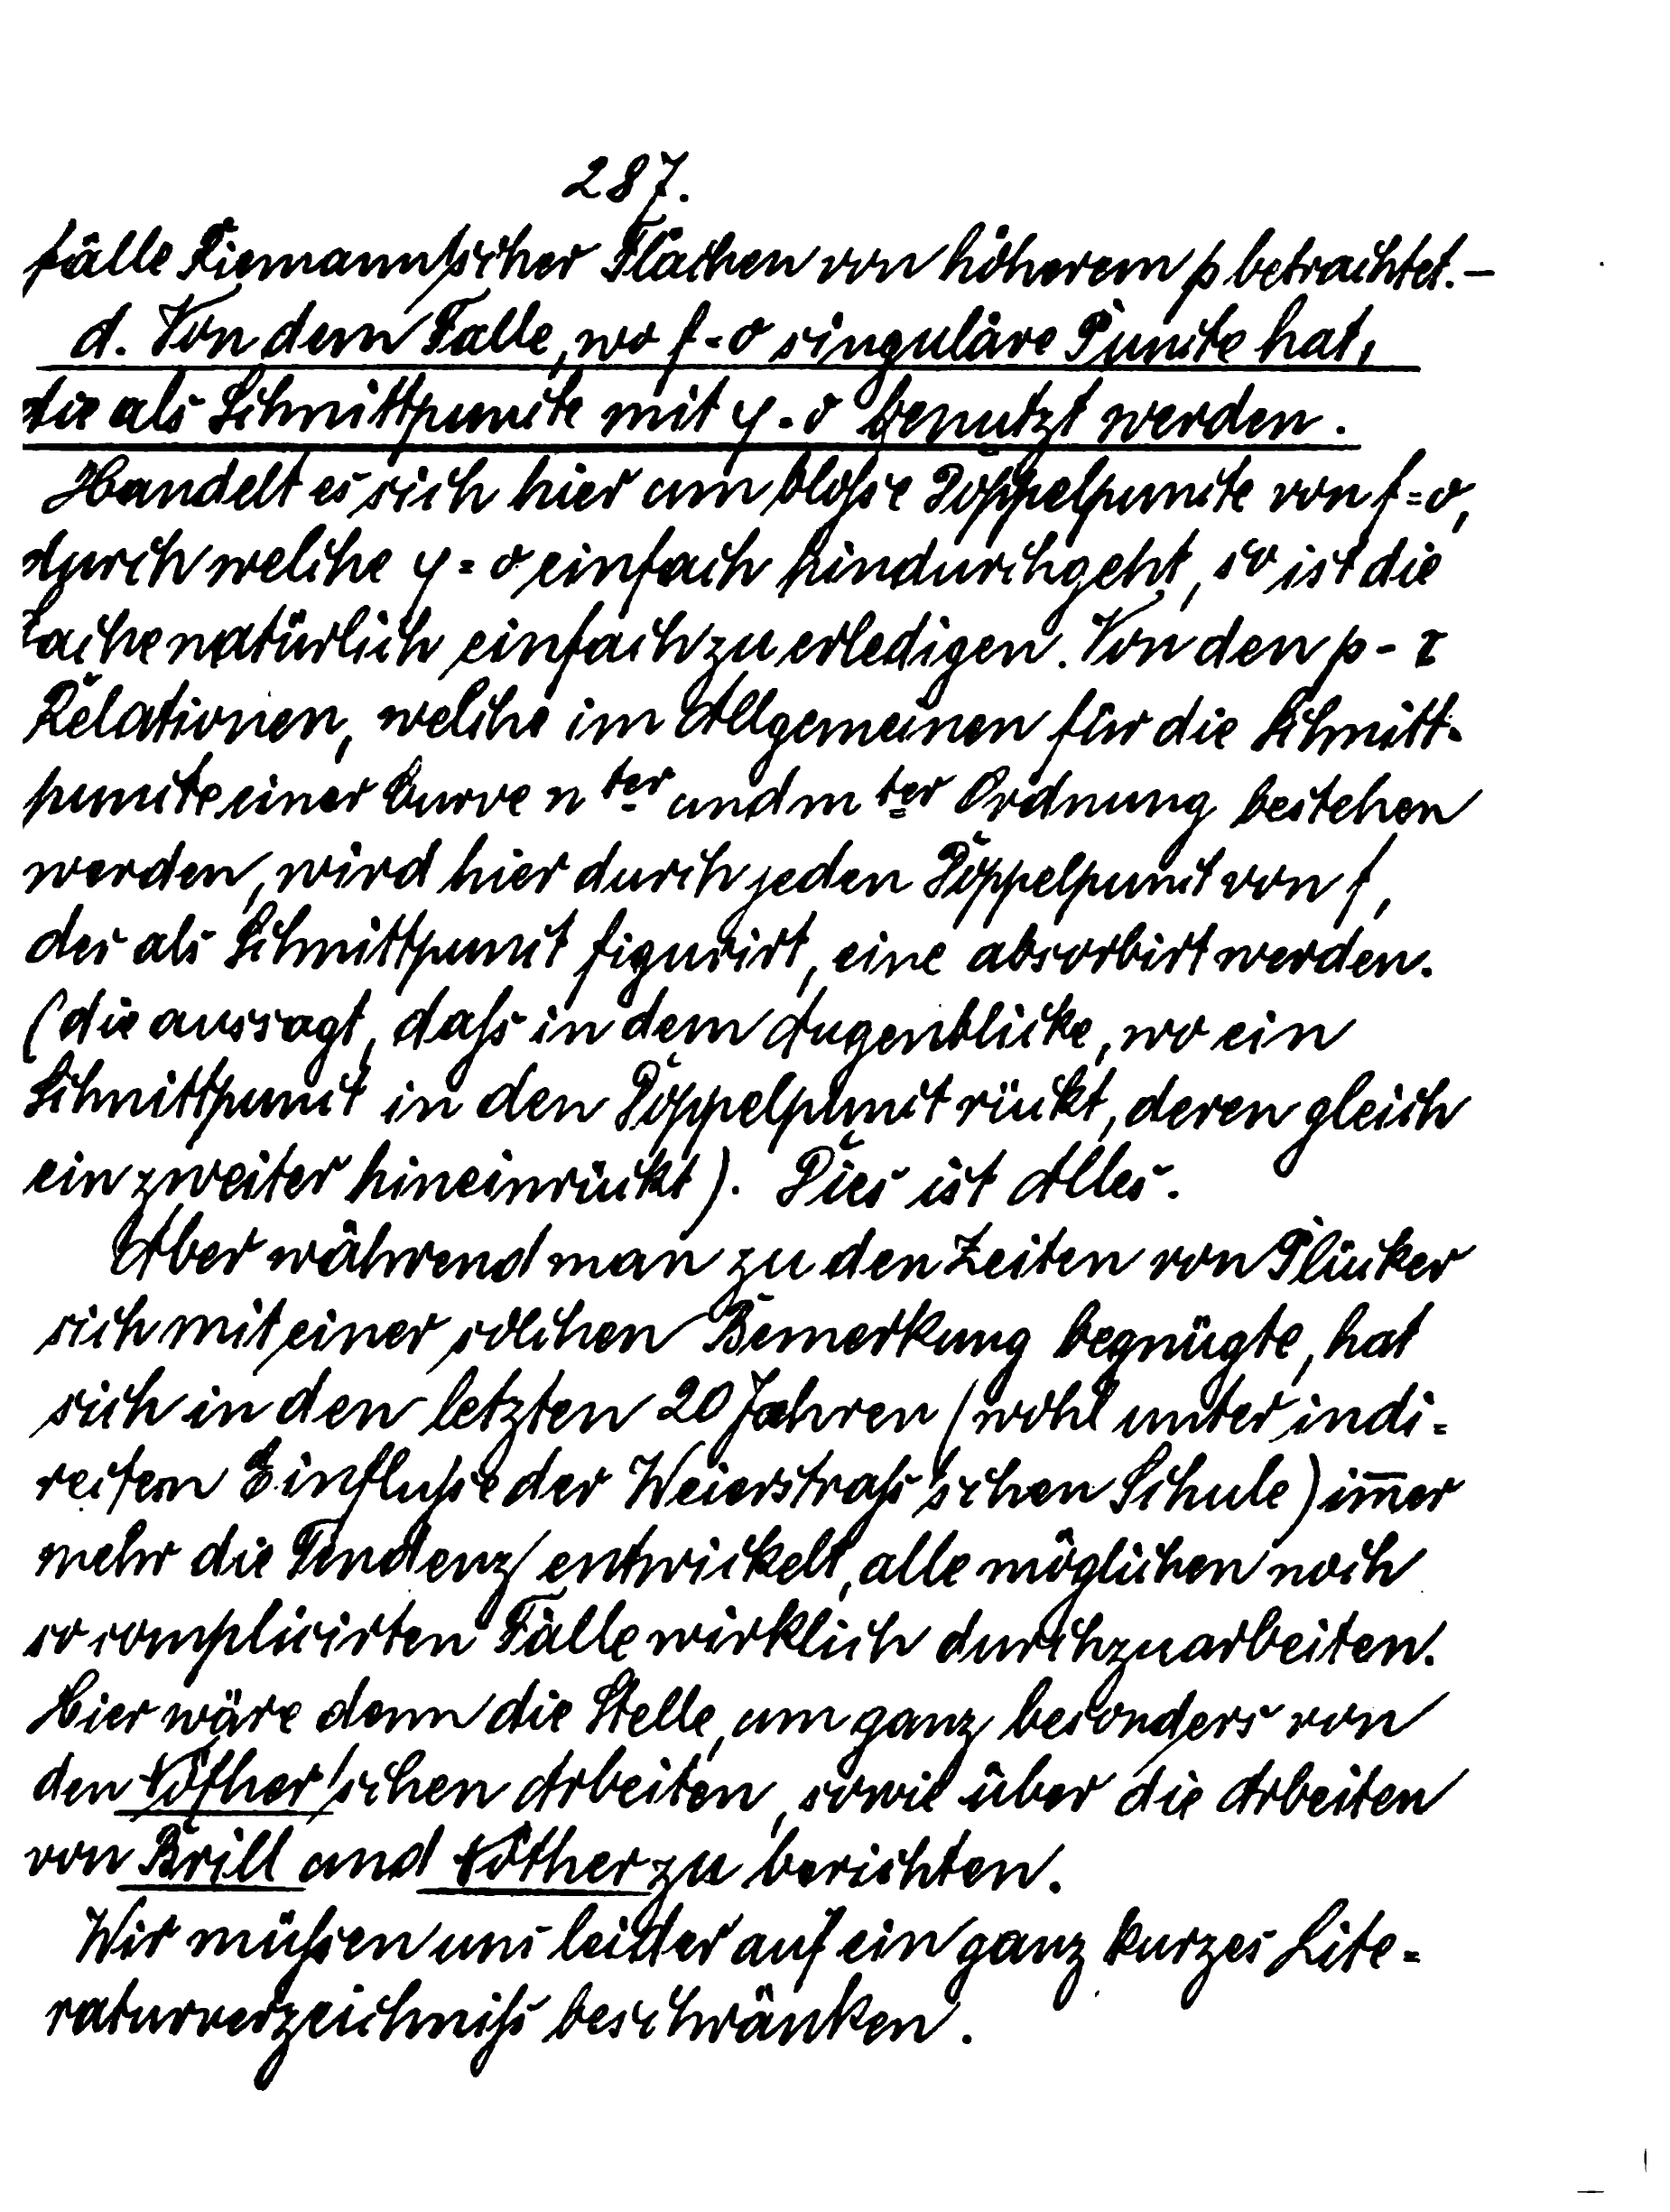 287.
fälle Riemann'scher Flächen von höherem p betrachtet. –
d. Von dem Falle, wo f = 0 singuläre Puncte hat,
die als Schnittpuncte mit φ = 0 benutzt werden.
Handelt es sich hier um bloße Doppelpuncte von f = 0,
durch welche φ = 0 einfach hindurchgeht, so ist die
Sache natürlich einfach zu erledigen. Von den p - τ
Relationen, welche im Allgemeinen für die Schnitt-
puncte einer Curve n ter und m ter Ordnung bestehen
werden, wird hier durch jeden Doppelpunct von f,
der als Schnittpunct figurirt, eine absorbirt werden.
(die aussagt, daß in dem Augenblicke, wo ein
Schnittpunct in den Doppelpunct rückt, deren gleich
ein zweiter hineinrückt). Dies ist Alles.
Aber während man zu den Zeiten von Plücker
sich mit einer solchen Bemerkung begnügte, hat
sich in den letzten 20 Jahren (wohl unter indi-
recten Einfluße der Weierstraß'schen Schule) im̅er
mehr die Tendenz entwickelt, alle möglichen noch
so complicirten Fälle wirklich durchzuarbeiten.
Hier wäre denn die Stelle, um ganz besonders von
den Nöther'schen Arbeiten, sowie über die Arbeiten
von Brill und Nöther zu berichten.
Wir müßen uns leider auf ein ganz kurzes Lite-
raturverzeichniß beschränken.